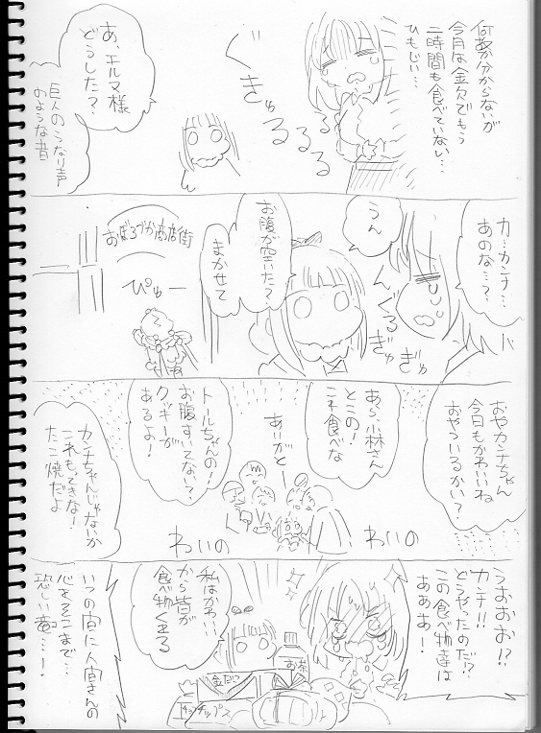 何故か分からないが
今月な金欠でもう
二時間も食べていない…
ひもじい…
ぐ
きゅ
るるるる
あ、エルマ様
どうした？
巨人のうなり声
のような音
カ…カンナ…
あのな…？
うん
ぐるぎゅぎゅ
お腹が空いた？
まかせて
おぼろづか商店街
ぴゅー
おやカンナちゃん
今日もかわいいね
おやついるかい？
あら小林さん
とこの！
これ食べな
ありがと
わいの
わいの
トールちゃんの！
お腹すいてない？
クッキーが
あるよ！
カンナちゃんじゃないか
これもってきな！
たこ焼だよ
うおおお！？
カンナ！！
どうやったのだ！？
この食べ物達は
ああああ！
私はかわ…
から皆が
食べ物くれる
お茶
チップス
いつの間に人間さんの
心をそこまで…
恐しい竜…！